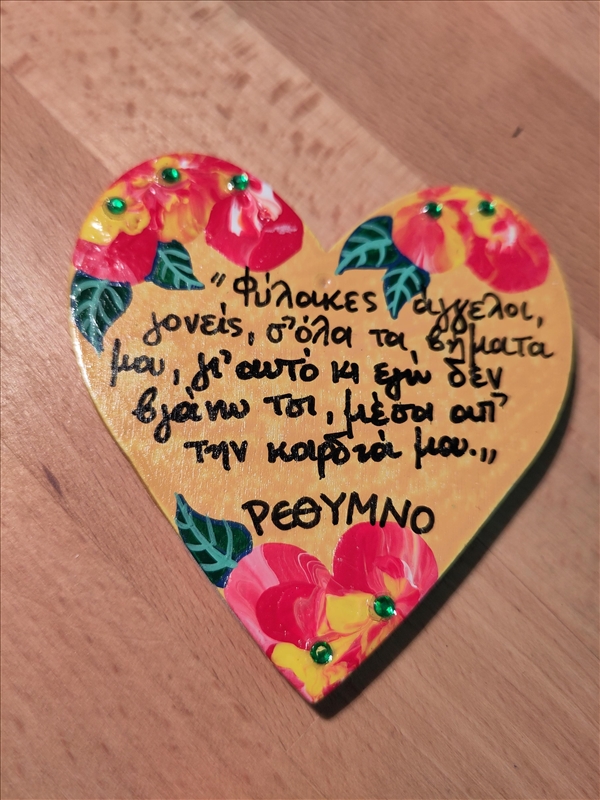 "Φύλακες άγγελοι,
γονείς, σ'όλα τα βήματα
μου, γι' αυτό κι εγώ δεν
βγάνω τσι, μέσα απ'
την καρδιά μου.,,
ΡΕΘΥΜΝΟ